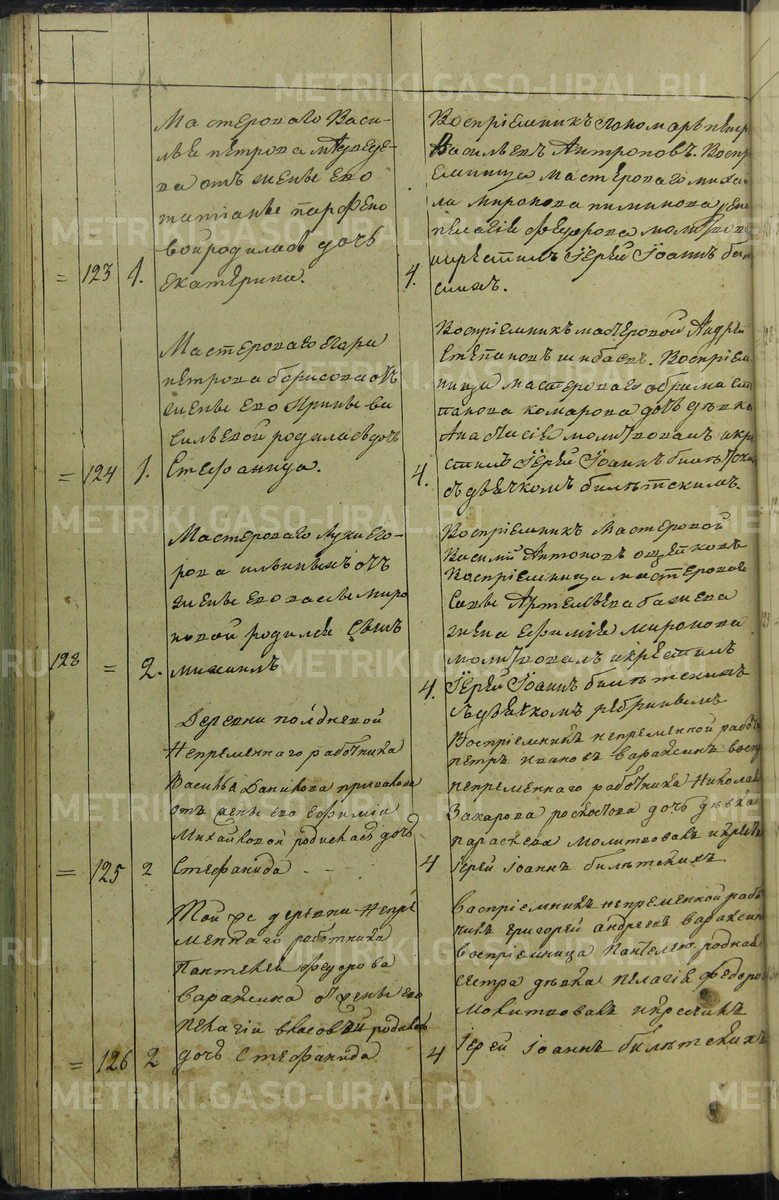 Мастероваго Васи-
лья петрова медведе-
ва отъ жены его
татианы парфено
вой родилась дочь
= 123 1. екатерина.
4.
Воспрiемникъ пономарь петръ
Васильевъ Антроповъ. Воспрi
емница мастероваго михаи
ла миронова пиминова жена
пелагiе федорова молитвовалъ
и крестилъ Iерей Iоаннъ билет
скихъ.
Мастероваго егора
петрова борисова отъ
жены его Ирины ва
сильевой родилась дочь
= 124 1. Стефанида.
4.
Воспрiемникъ мастеровой Андрей
Степановъ шибаевъ. Воспрiем
ница мастероваго ефима сте
панова комарова дочь девка
Анастасiе молитвовалъ и кре
стилъ Iерей Iоаннъ билетскихъ
съ дьячкомъ билетскимъ.
Мастероваго Луки его-
рова ильиныхъ отъ
жены его васы миро
новой родился Сынъ
128 = 2. михаилъ
4.
Воспрiемникъ Мастеровой
Василий Антоновъ
Воспрiемница мастероваго
Савы Артемьева бажева
жена Ефимiе миронова
молитвовалъ и крестилъ
Iерей Iоаннъ билетскихъ
съ дьячкомъ ребринымъ
Деревни полдневой
Непременнаго работника
Василья Данилова привалова
отъ жены его Ефимiи
Михайловой родилась дочь
= 125 2 Стефанида
4
Воспрiемникъ непременной работн
петръ ивановъ Вараксинъ восп
непременнаго работника Николая
Захарова дочь девка
параскева молитвовалъ и крест
Iерей Iоаннъ билетскихъ
Той же деревни Непре
меннаго работника
Пантелея Федорова
Вараксина отъ жены его
пелагiи власовой родилась
= 126 2 дочь Стефанида
4
Воспрiемникъ непременной рабо
никъ григорей андреевъ вараксин
воспрiемница Пантелею родная
сестра девка пелагiя Федоров
молитвовалъ и крестилъ
Iерей Iоаннъ билетскихъ
METRIKI.GASO-URAL.RU